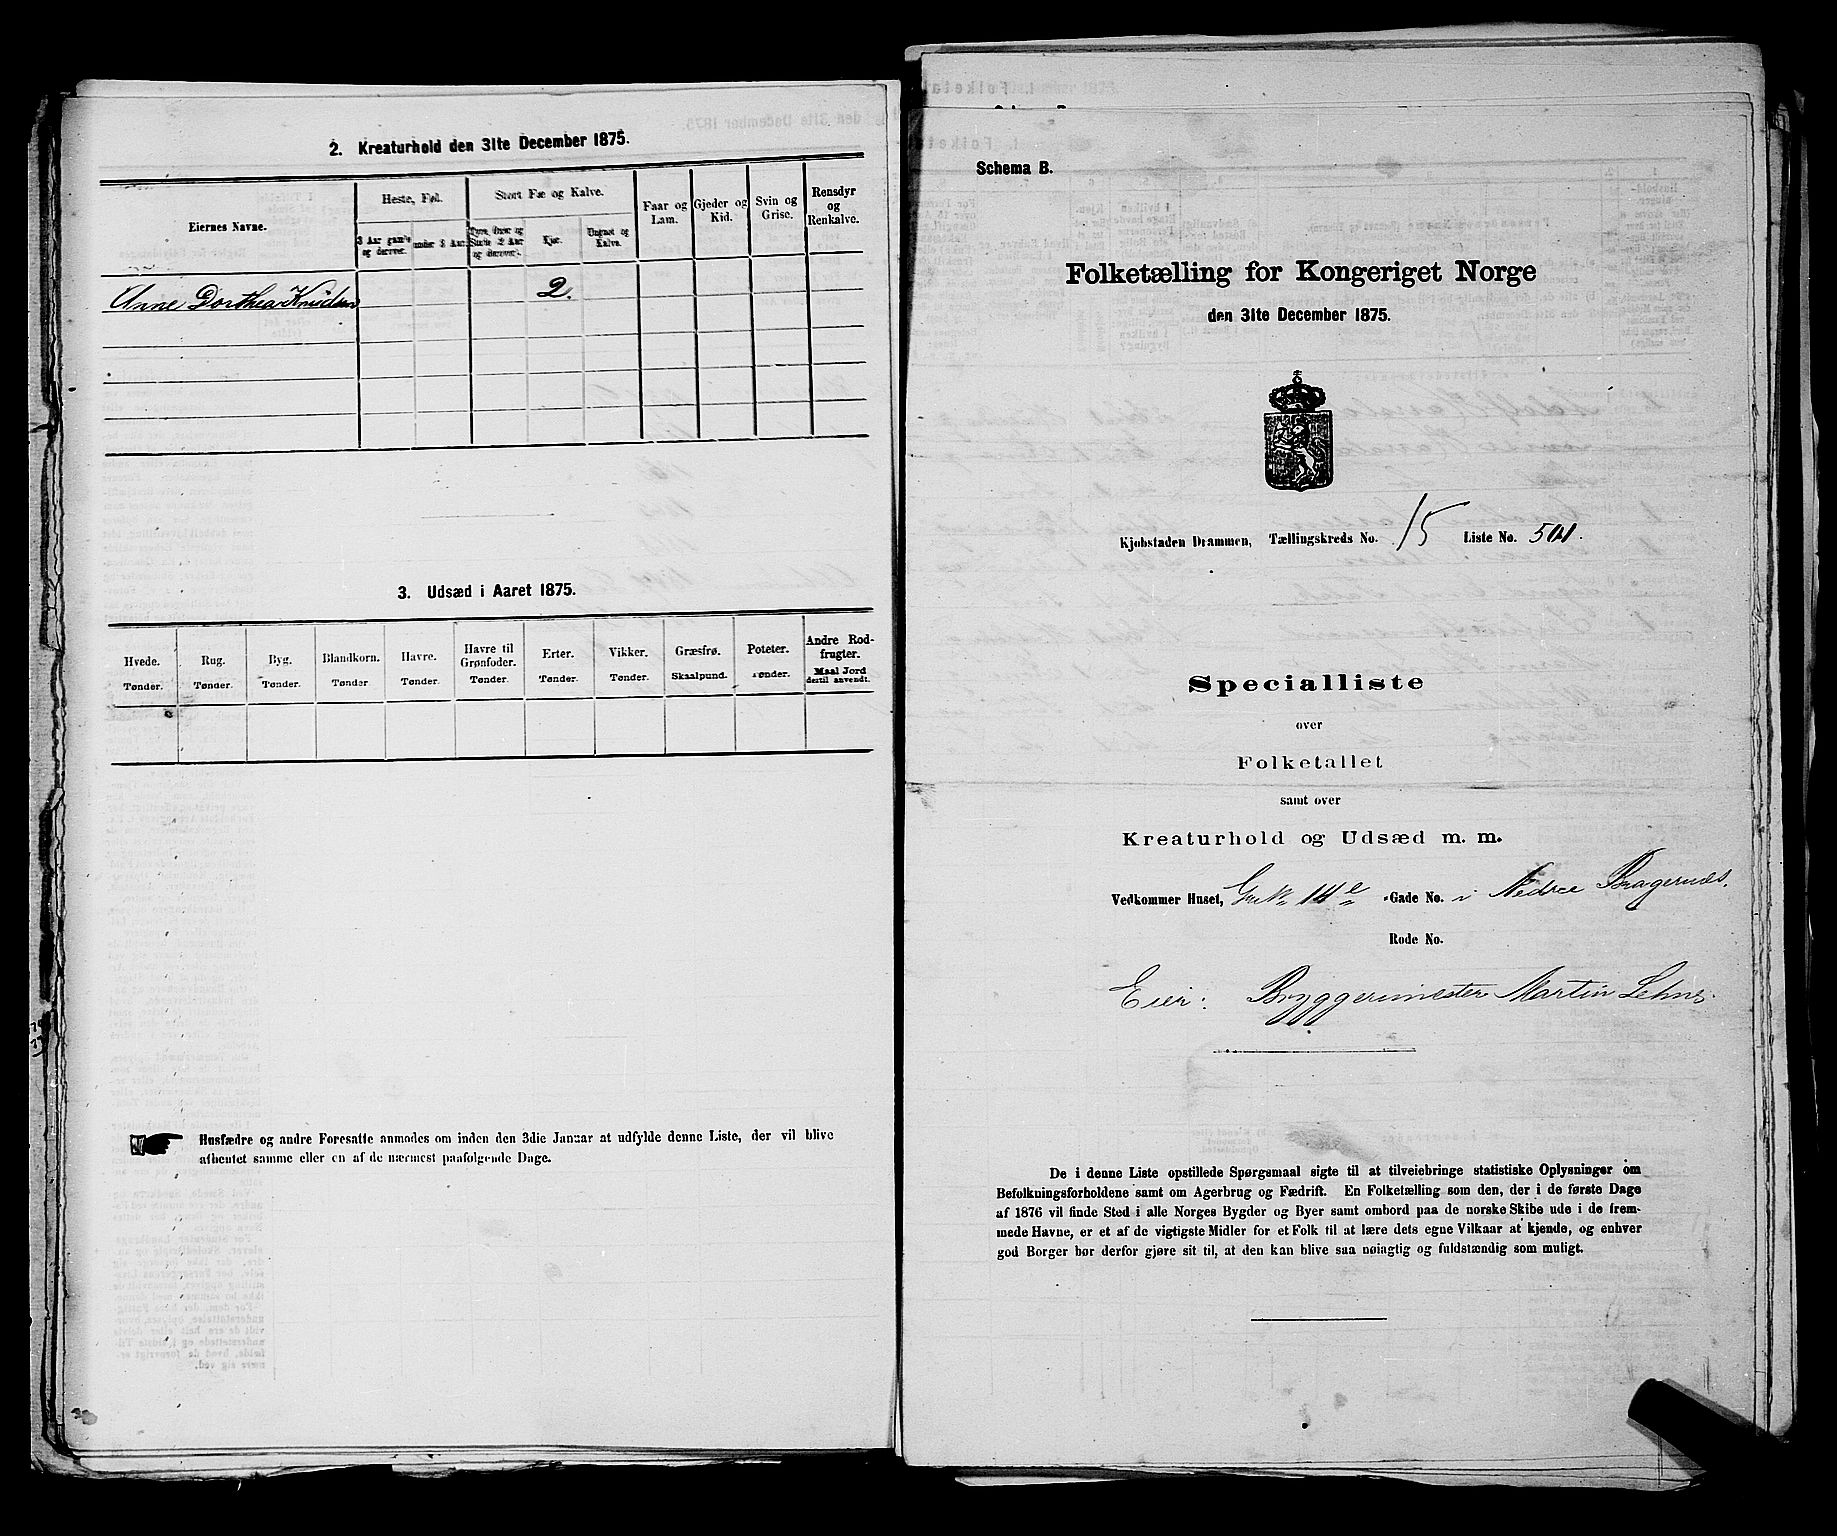 2. Kreaturhold den 31te December 1875.
Eiernes Navne.
Heste, Føl.
Stort Fæ og Kalve.
Faar og Lam.
Gjeder og Kid.
Svin og Grise.
Rensdyr og Renkalve.
3 Aar gamle og derover.
under 3 Aar.
Tyre, Oxer og Stude 2 Aar og derover.
Kjør.
Ungnøt og Kalve.
Anne Dorthea Knudsen 2.
3. Udsæd i Aaret 1875.
Hvede. Rug. Byg. Blandkorn. Havre. Havre til Grønfoder. Erter. Vikker. Græsfrø. Poteter. Andre Rodfrugter.
Tønder. Tønder. Tønder. Tønder Tønder. Tønder. Tønder. Tønder. Skaalpund. Tønder. Maal Jord dertil anvendt.
Husfædre og andre Foresatte anmodes om inden den 3die Januar at udfylde denne Liste, der vil blive
afhentet samme eller en af de nærmest paafølgende Dage.
Schema B.
Folketælling for Kongeriget Norge
den 31te December 1875.
Kjøbstaden Drammen, Tællingskreds No. 15 Liste No.
Specialliste
over
Folketallet
samt over
Kreaturhold og Udsæd m. m.
Vedkommer Huset, 14 e Gade No. i Nedre Bragernæs.
Rode No.
Eier: Bryggermester Martin Lehne.
De i denne Liste opstillede Spørgsmaal sigte til at tilveiebringe statistiske Oplysninger om
Befolkningsforholdene samt om Agerbrug og Fædrift. En Folketælling som den, der i de første Dage
af 1876 vil finde Sted i alle Norges Bygder og Byer samt ombord paa de norske Skibe ude i de frem-
mede Havne, er et af de vigtigste Midler for et Folk til at lære dets egne Vilkaar at kjende, og enhver
god Borger bør derfor gjøre sit til, at den kan blive saa nøiagtig og fuldstændig som muligt.